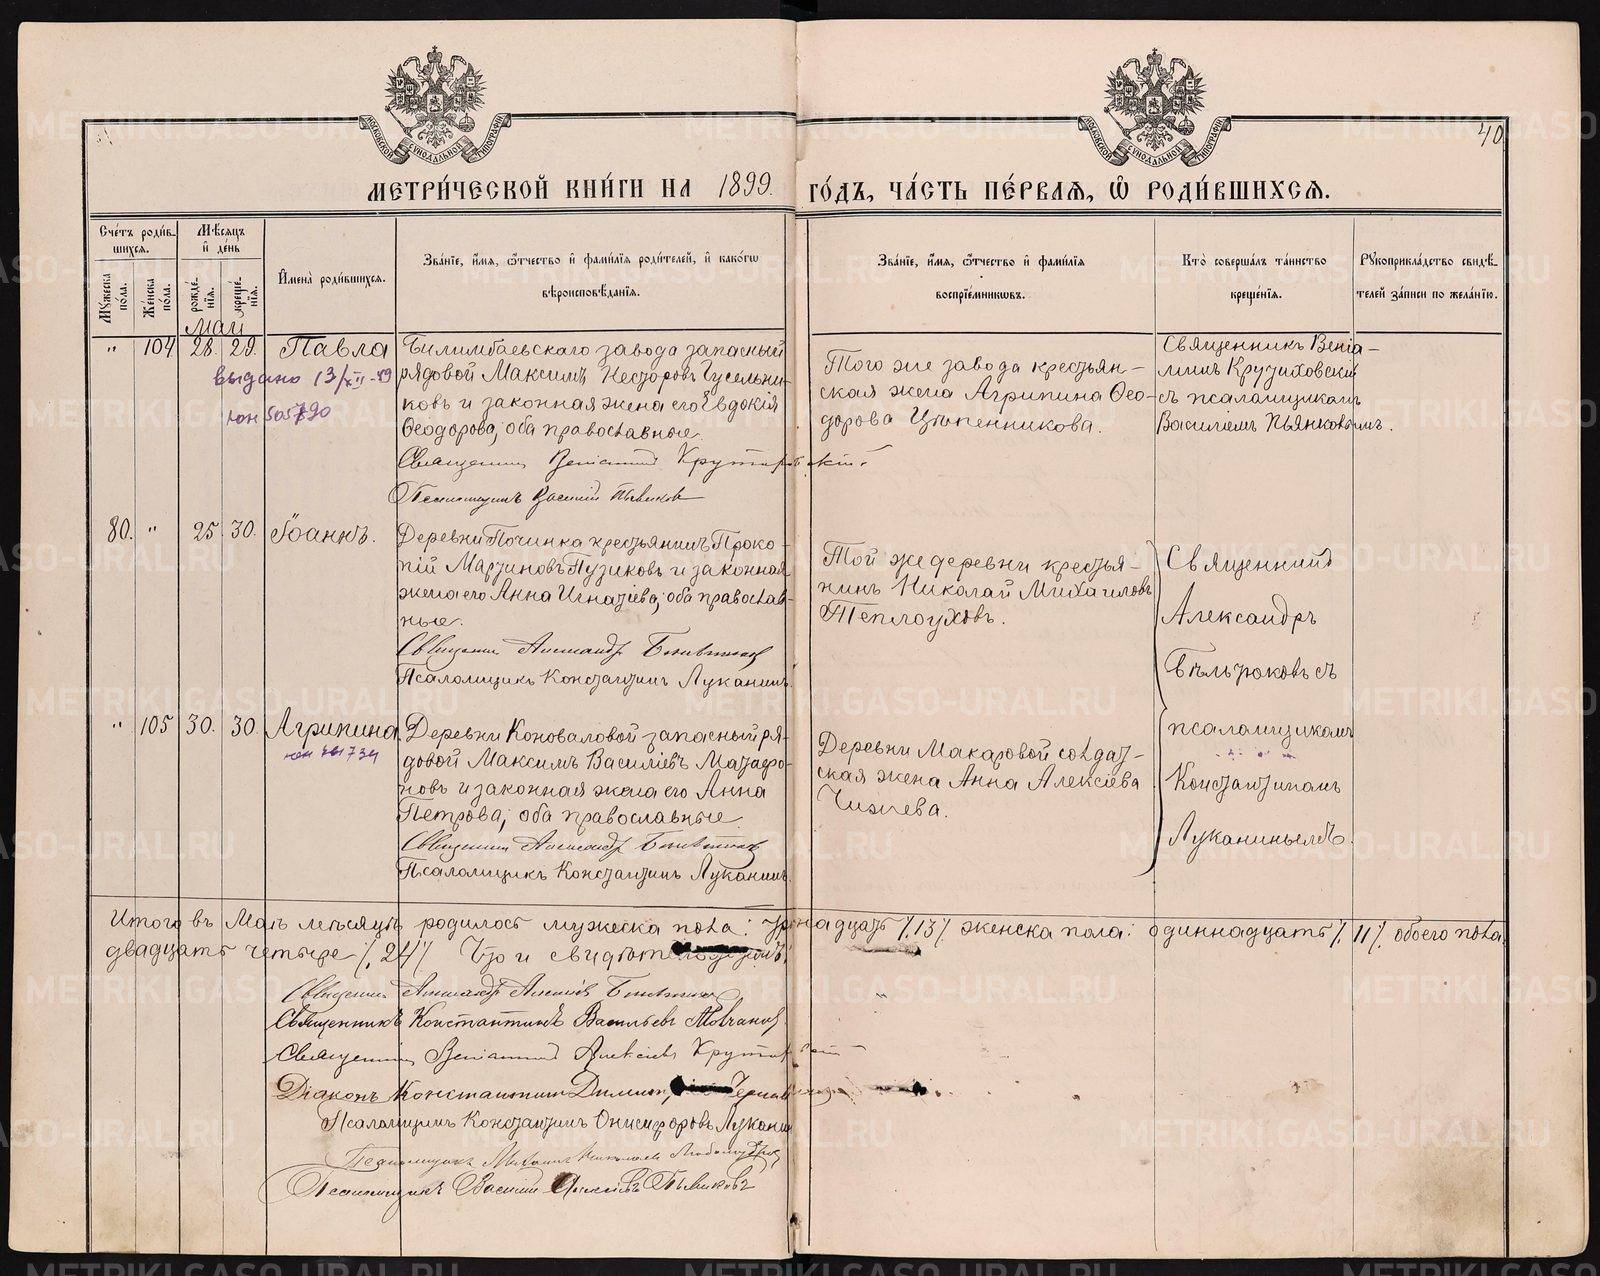 МОСКОВСКОЙ СУНОДАЛЬНОЙ ТИПОГРАФІИ
МОСКОВСКОЙ СУНОДАЛЬНОЙ ТИПОГРАФІИ
40
МЕТРИ́ЧЕСКОЙ КНИ́ГИ НА 1899. ГО́ДЪ, ЧА́СТЬ ПЕ́РВАЯ, Ѿ РОДИ́ВШИХСЯ.
Сче́тъ роди́вшихся.
Мꙋ́жеска по́ла.
Же́нска по́ла.
Мѣ́сяцъ и́ де́нь
рожде́нїя.
креще́нїя.
И҆мена̀ роди́вшихся.
Зва́нїе, и҆́мя, ѻ҆́тчество и҆ фами́лїя роди́телей, и҆ како́гѡ вѣроисповѣ́данїя.
Зва́нїе, и҆́мя, ѻ҆́тчество и҆ фами́лїя воспрїе́мникѡвъ.
Кто̀ соверша́лъ та́инство креще́нїя.
Рꙋкоприкла́дство свидѣ́телей за́писи по жела́нїю.
Май
" 104 28. 29. Павла
выдано 13/XII-49
юн 505790
Билимбаевскаго завода запасный
рядовой Максимъ Несторовъ Гусельни-
ковъ и законная жена его Евдокія
Ѳеодорова, оба православные.
Священникъ Веніаминъ Крутиховскій
Псаломщикъ Василій Пьянковъ
Того же завода крестьян-
ская жена Агрипина Ѳео-
дорова Цѣпенникова.
Священникъ Веніа-
минъ Крутиховскій
съ псаломщикомъ
Василіемъ Пьянковымъ.
80. " 25. 30. Іоаннъ.
Деревни Починка крестьянинъ Проко-
пій Мартиновъ Пузиковъ и законная
жена его Анна Игнатіева, оба православ-
ные.
Священникъ Александръ
Псаломщикъ Константинъ Луканинъ.
Той же деревни крестья-
нинъ Николай Михаиловъ
Теплоуховъ.
Священникъ
Александръ
Бѣльтюковъ съ
псаломщикомъ
Константиномъ
Луканинымъ.
" 105 30. 30. Агрипина
Деревни Коноваловой запасный ря-
довой Максимъ Василіевъ Матафо-
новъ и законная жена его Анна
Петрова, оба православные.
Священникъ Александръ
Псаломщикъ Константинъ Луканинъ.
Деревни Макаровой солдат-
ская жена Анна Алексіева
Чижева.
Итого въ Маѣ мѣсяцѣ родилось мужеска пола: тринадцать /.13/. женска пола: одиннадцать /. 11/. обоего пола
двадцать четыре /.24/. Что и свидѣтельствуемъ:
Священникъ Александръ Алексіевъ
Священникъ Константинъ Васильевъ
Священникъ Веніаминъ Алексіевъ Крутиховскій
Діаконъ Константинъ
Псаломщикъ Константинъ Онисифоровъ Луканинъ
Псаломщикъ Михаилъ Николаевъ
Псаломщикъ Василій Алексіевъ Пьянковъ
METRIKI.GASO-URAL.RU